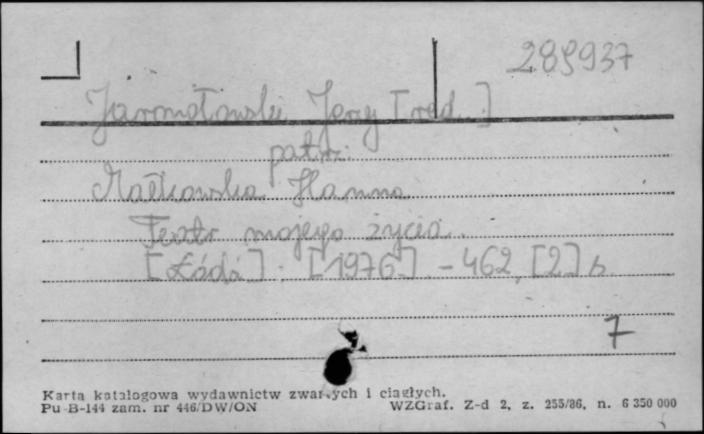 289937
Jarmołowski Jerzy [red.]
patrz:
Małkowska Hanna
Teatr mojego życia.
[Łódź] : [1976]. - 462, [2] s.
7
Karta katalogowa wydawnictw zwartych i ciągłych.
Pu-B-144 zam. nr 446/DW/ON WZGraf. Z-d 2, z. 255/86, n. 6 350 000